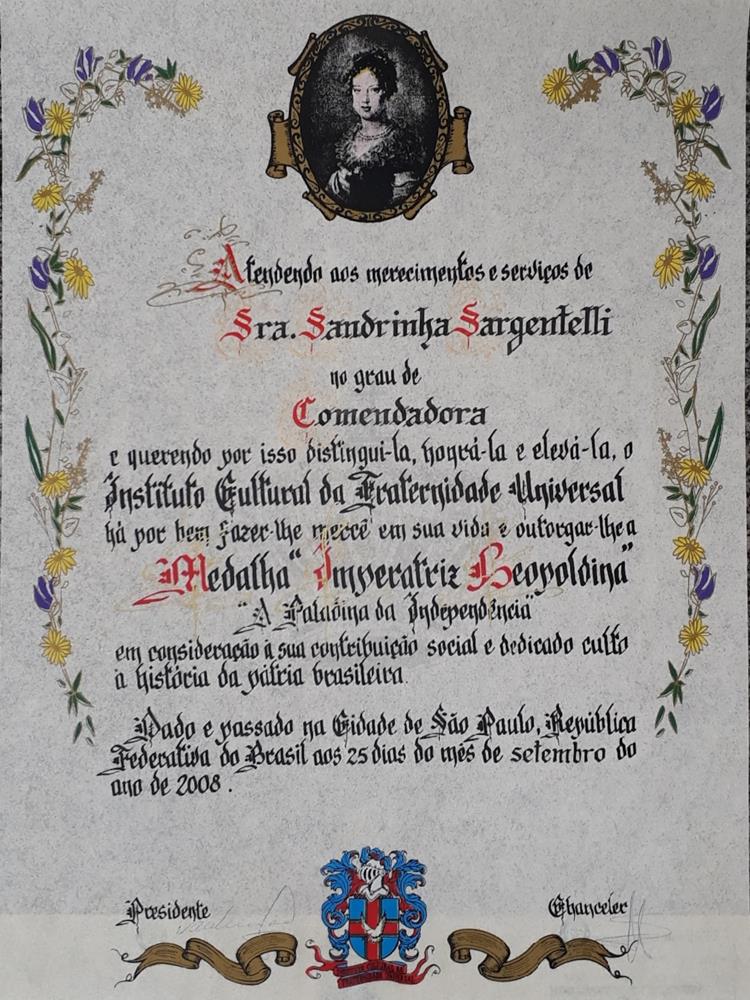 Atendendo aos merecimentos e serviços de
Sra. Sandrinha Sargentelli
no grau de
Comendadora
e querendo por isso distingui-la, honrá-la e elevá-la, o
Instituto Cultural da Fraternidade Universal
há por bem fazer-lhe mercê em sua vida e outorgar-lhe a
Medalha "Imperatriz Leopoldina"
"A Paladina da Independência"
em consideração à sua contribuição social e dedicado culto
à história da pátria brasileira.
Dado e passado na Cidade de São Paulo, República
Federativa do Brasil aos 25 dias do mês de setembro do
ano de 2008.
Presidente
Chanceler